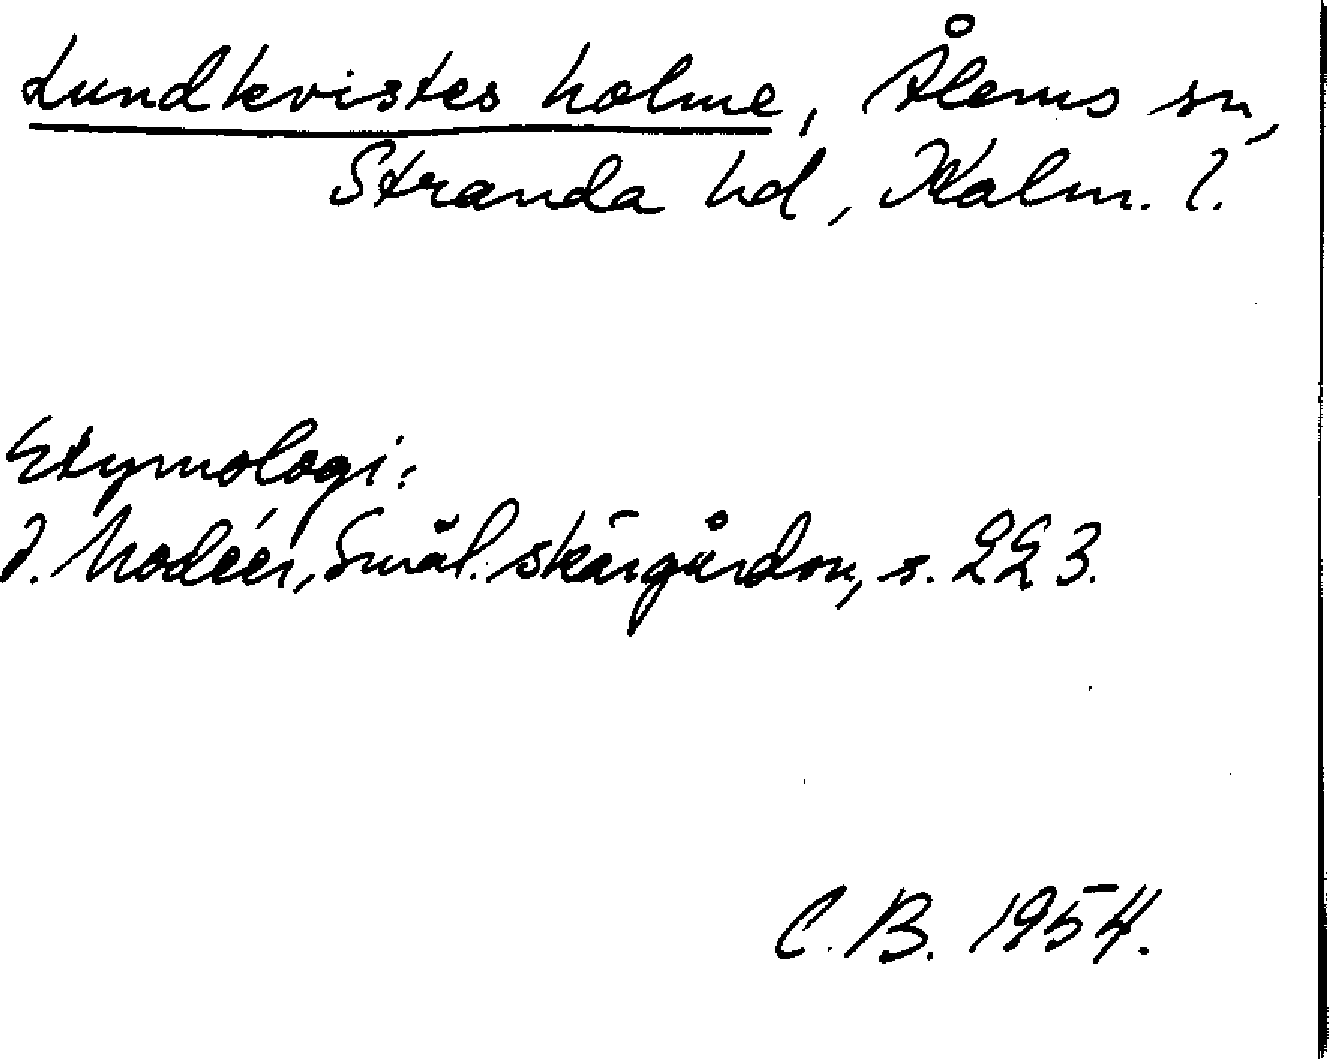 Lundkvistes holme, Ålems sn,
Stranda hd, Kalm. l.
Etymologi:
I. Modéer, Smål. skärgårdsn, s. 223.
C.B. 1954.